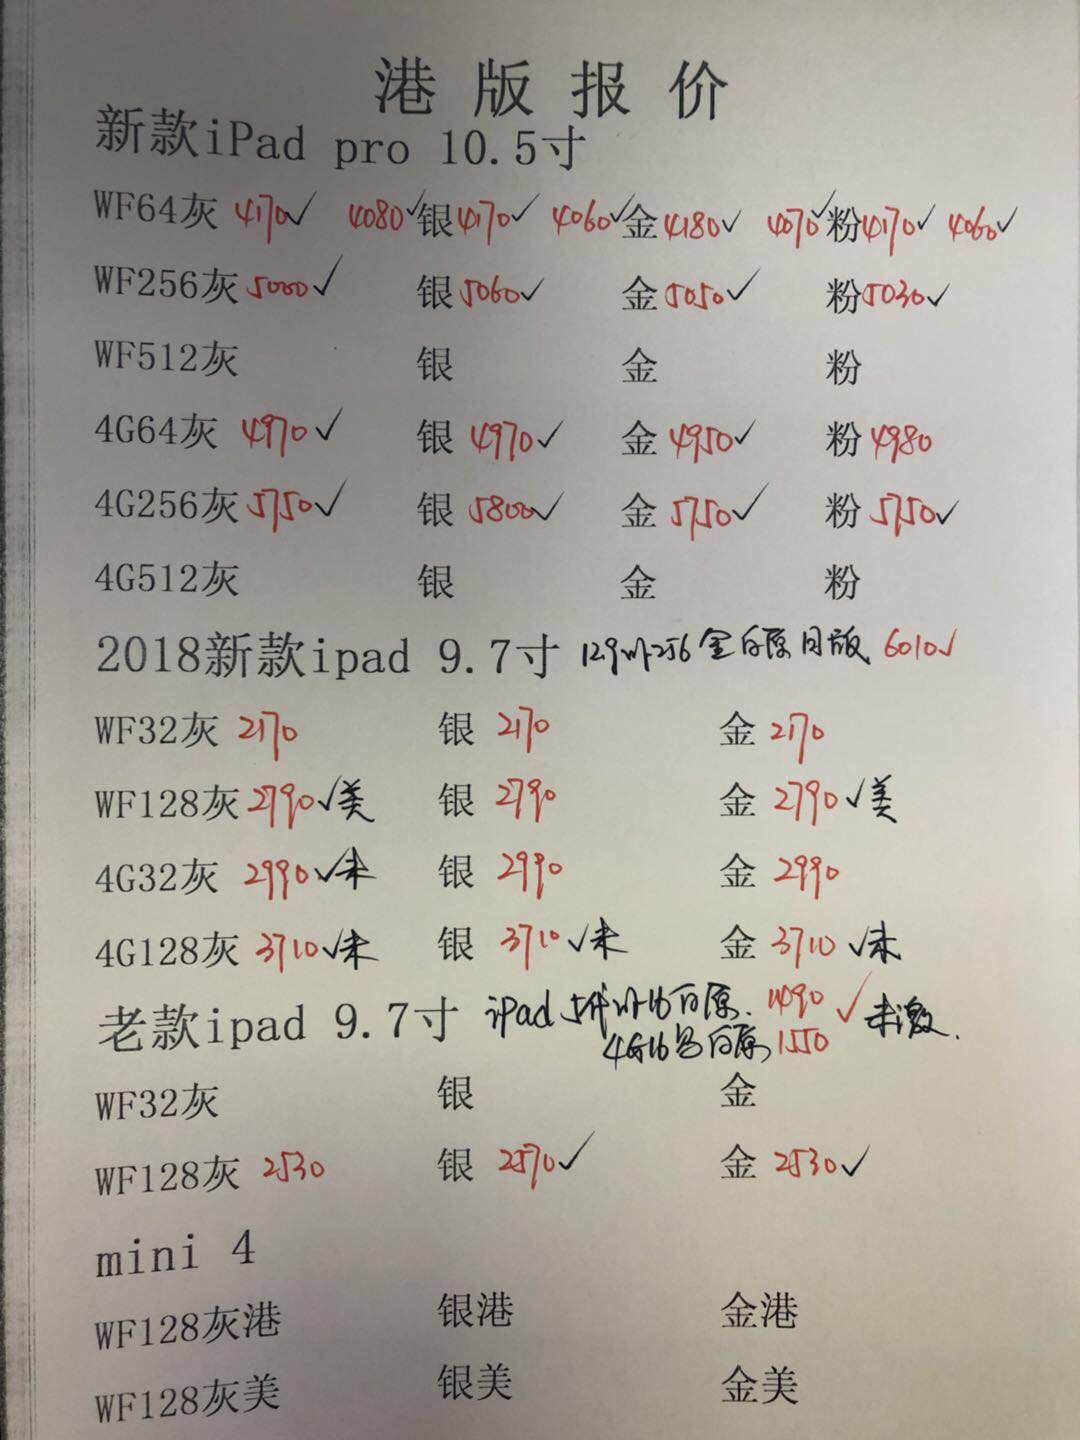 港版报价
新款iPad pro 10.5寸
WF64灰 4170✓ 4080✓ 银 4170✓ 4060✓ 金 4180✓ 4070✓ 粉 4170✓ 4060✓
WF256灰 5000✓ 银 5060✓ 金 5050✓ 粉 5030✓
WF512灰 银 金 粉
4G64灰 4970✓ 银 4970✓ 金 4950✓ 粉 4980
4G256灰 5750✓ 银 5800✓ 金 5750✓ 粉 5750✓
4G512灰 银 金 粉
2018新款ipad 9.7寸 129 256 金 日版 6010✓
WF32灰 2170 银 2170 金 2170
WF128灰 2790✓美 银 2790 金 2790✓美
4G32灰 2990✓未 银 2990 金 2990
4G128灰 3710✓未 银 3710✓未 金 3710✓未
老款ipad 9.7寸 iPad 5代 1490✓ 未激
4G16 1550
WF32灰 银 金
WF128灰 2530 银 2570✓ 金 2530✓
mini 4
WF128灰港 银港 金港
WF128灰美 银美 金美